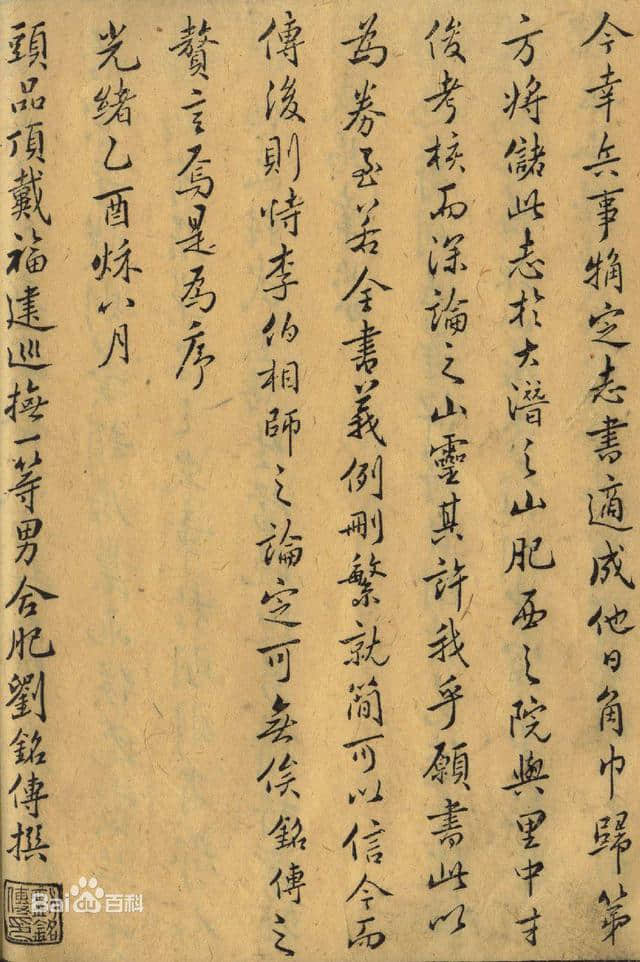 今幸兵事觕定志書適成他日角巾歸第
方將儲此志於大潛之山肥西之院與里中才
俊考核而深論之山靈其許我乎願書此以
為券至若全書義例刪繁就簡可以信今而
傳後則恃李伯相師之論定可無俟銘傳之
贅言焉是為序
光緒乙酉秌八月
頭品頂戴福建巡撫一等男合肥劉銘傳撰
劉銘傳印
Baidu百科